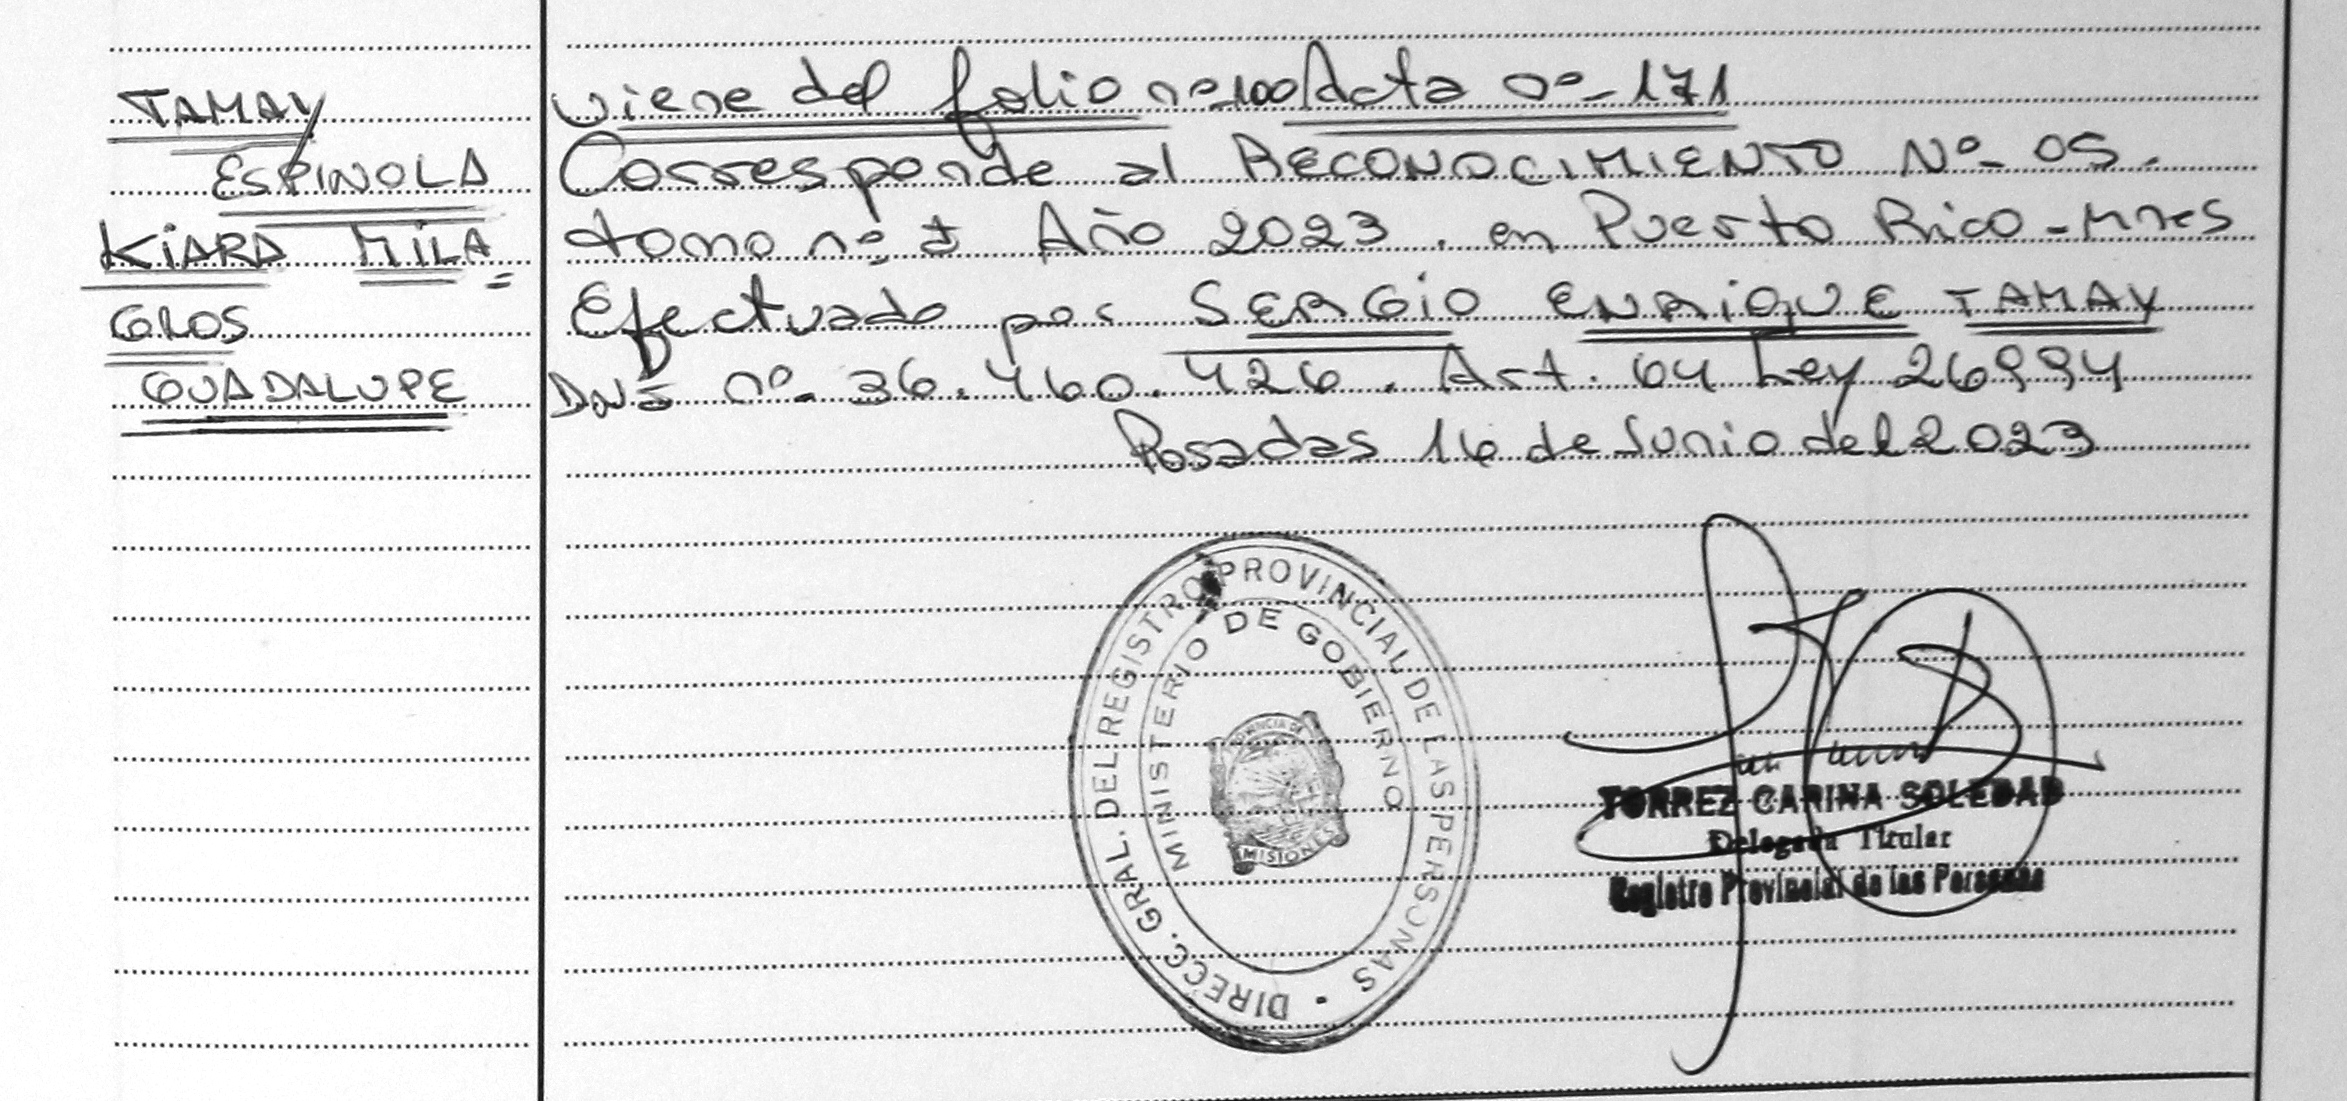 TAMAY
ESPINOLA
KIARA MILA
GROS
GUADALUPE
viene del folio nº 100 Acta nº 171
Corresponde al RECONOCIMIENTO Nº 05.
tomo nº I Año 2023. en Puerto Rico - Mnes
Efectuado por SERGIO ENRIQUE TAMAY
DNI nº 36.460.426. Art. 64 Ley 26994
Posadas 16 de Junio del 2023
DIRECC. GRAL. DEL REGISTRO PROVINCIAL DE LAS PERSONAS
MINISTERIO DE GOBIERNO
PROVINCIA DE
MISIONES
TORREZ CARINA SOLEDAD
Delegada Titular
Registro Provincial de las Personas